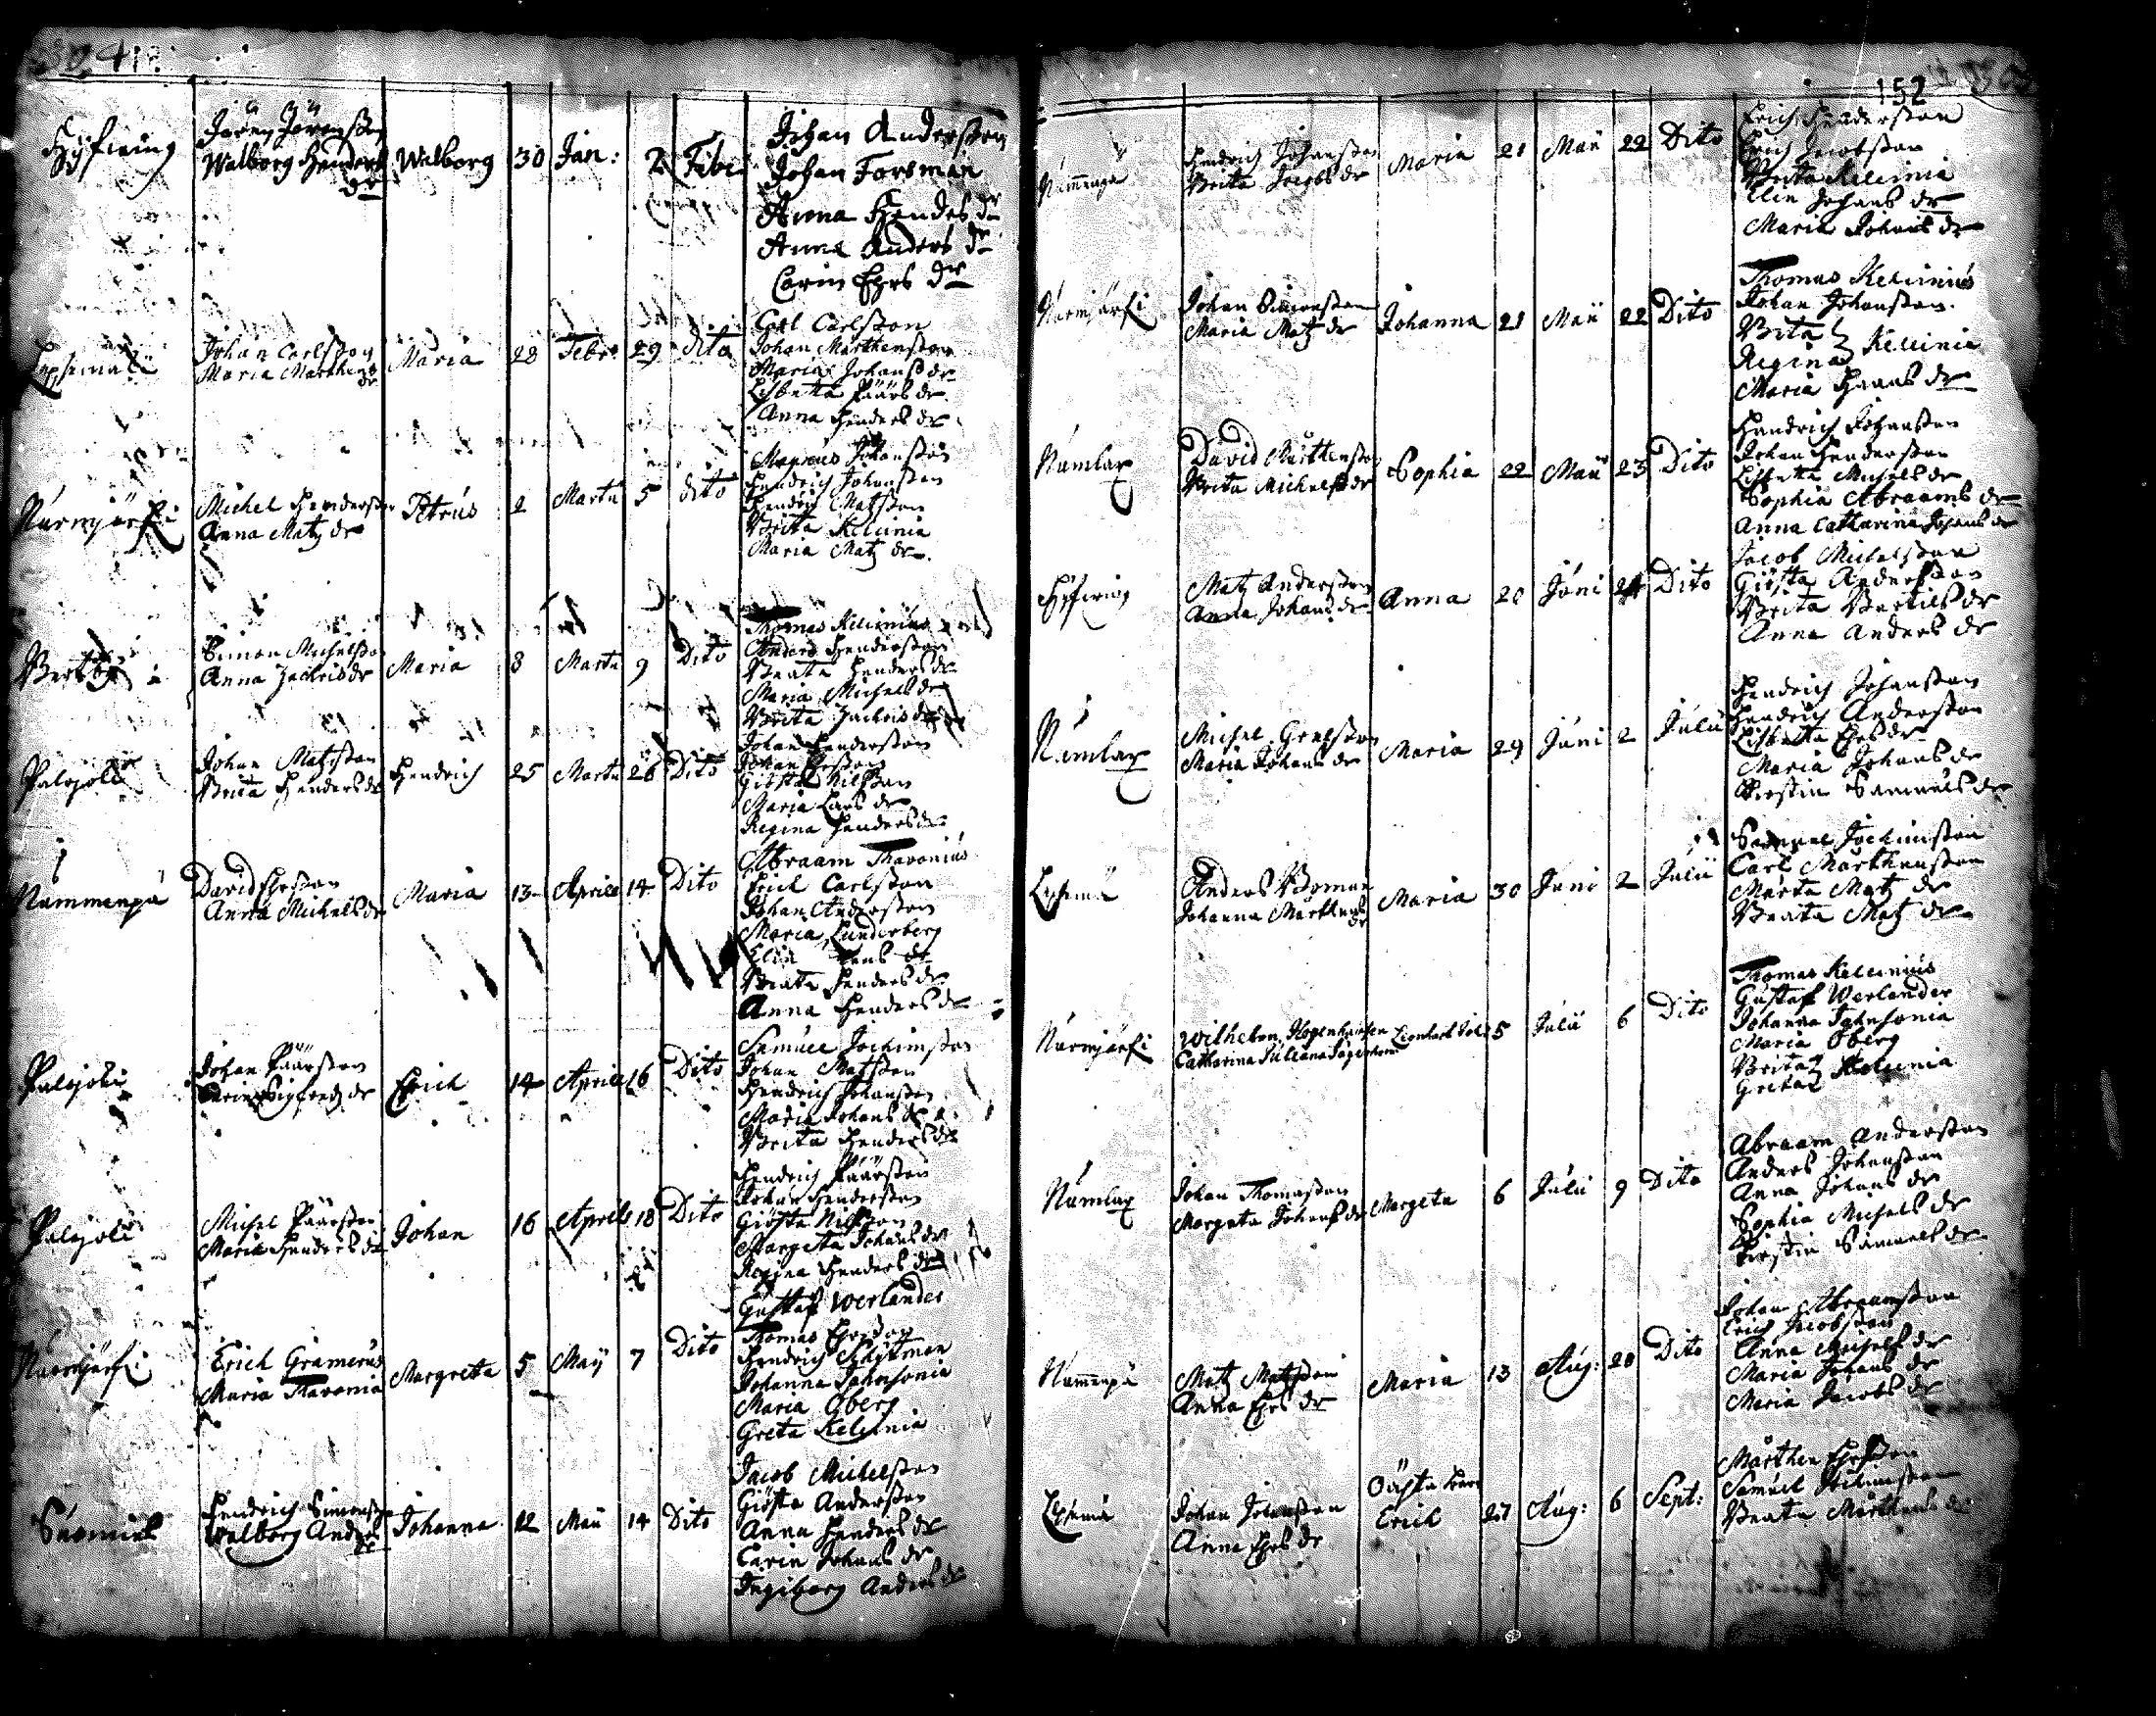 Jören Jörensson
Walborg Henders
dr
Walborg 30 Jan: 2 Febr:
Johan Andersson
Johan Forsman
Anna Henders dr
Anna Anders dr
Carin Ehrs dr
Johan Carlsson
Maria Mårthens
dr
Maria 28 Febr: 29 dito
Carl Carlsson
Johan Mårthensson
Maria Johans dr
Lisbetta Påårs dr
Anna Henders dr
Nurmjärfi
Michel Hendersson
Anna Matz dr
Petrus 2 Martii 5 dito
Johansson
Hendrich Johansson
Hendrich Matsson
Brita Kelinia
Maria Matz dr
Simon Michelsson
Anna Zachris dr
Maria 8 Martii 9 Dito
Thomas Kelinius
Anders Hendersson
Beata Henders dr
Maria Michels dr
Brita Zachris dr
Palojoki
Johan Matsson
Brita Henders dr
Hendrich 25 Martii 26 Dito
Johan Hendersson
Johan Ersson
Giösta Nilsson
Maria Lars dr
Regina Henders dr
Nummenpä
David Ehrsson
Anna Michels dr
Maria 13 Aprill 14 Dito
Abraam Thavonius
Erich Carlsson
Johan Andersson
Maria Lunderberg
Elin dr
Beata Henders dr
Anna Henders dr
Palojoki
Johan Påårsson
Carin Sigfreds dr
Erich 14 Aprill 16 Dito
Samuel Jochimsson
Johan Matsson
Hendrich Johansson
Maria Johans dr
Brita Henders dr
Palojoki
Michel Påårsson
Maria Henders dr
Johan 16 Aprill 18 Dito
Hendrich Påårsson
Johan Hendersson
Giösta Nilsson
Margeta Johans dr
Regina Henders dr
Nurmjärfi
Erich Gramerus
Maria Thavonia
Margreta 5 Maÿ 7 Dito
Gustaf Werlander
Thomas Ehrsson
Hendrich Schÿtman
Johanna Jahnsonia
Maria Öberg
Greta Kelinia
Suomies
Hendrich Simonsson
Walborg Anders
dr
Johanna 12 Maii 14 Dito
Jacob Michelsson
Giösta Andersson
Anna Henders dr
Carin Johans dr
Ingiborg Anders dr
152
Nummenpä
Hendrich Johansson
Brita Jacobs dr
Maria 21 Maii 22 Dito
Erich Hendersson
Erich Jacobsson
Brita Kelinia
Elin Johans dr
Maria Johans dr
Nurmjärfi
Johan Simonsson
Maria Matz dr
Johanna 21 Maii 22 Dito
Thomas Kelinius
Johan Johansson
Brita
Regina Kelinia
Maria Hans dr
Numlax
David Mårthensson
Brita Michels dr
Sophia 22 Maii 23 Dito
Hendrich Johansson
Johan Hendersson
Lisbetta Michels dr
Sophia Abraams dr
Anna Catharina Johans dr
Matz Andersson
Anna Johans dr
Anna 20 Juni 24 Dito
Jacob Michelsson
Giösta Andersson
Brita Bertils dr
Anna Anders dr
Numlax
Michel Grelsson
Maria Johans dr
Maria 29 Juni 2 Julii
Hendrich Johansson
Hendrich Andersson
Lisbetta Ehrs dr
Maria Johans dr
Kirstin Samuels dr
Anders Boman
Johanna Mårthens
dr
Maria 30 Juni 2 Julii
Samuel Jochimsson
Carl Mårthensson
Marta Matz dr
Beata Matz dr
Nurmjärfi
Wilhelm
Catharina Juliana
5 Julii 6 Dito
Thomas Kelinius
Gustaf Werlander
Johanna Jahnsonia
Maria Öberg
Brita
Greta Kelinia
Numlax
Johan Thomasson
Margeta Johans dr
Margeta 6 Julii 9 Dito
Abraam Andersson
Anders Johansson
Anna Johans dr
Sophia Michels dr
Kirstin Samuels dr
Nummenpä
Matz Matsson
Anna Ehrs dr
Maria 13 Aug: 20 Dito
Johan Abraamsson
Erich Jacobsson
Anna Michels dr
Maria Johans dr
Maria Jacobs dr
Johan Johansson
Anna Ehrs dr
Erich 27 Aug: 6 Sept:
Mårthen Ehrsson
Samuel Jochimsson
Beata Mårthens dr